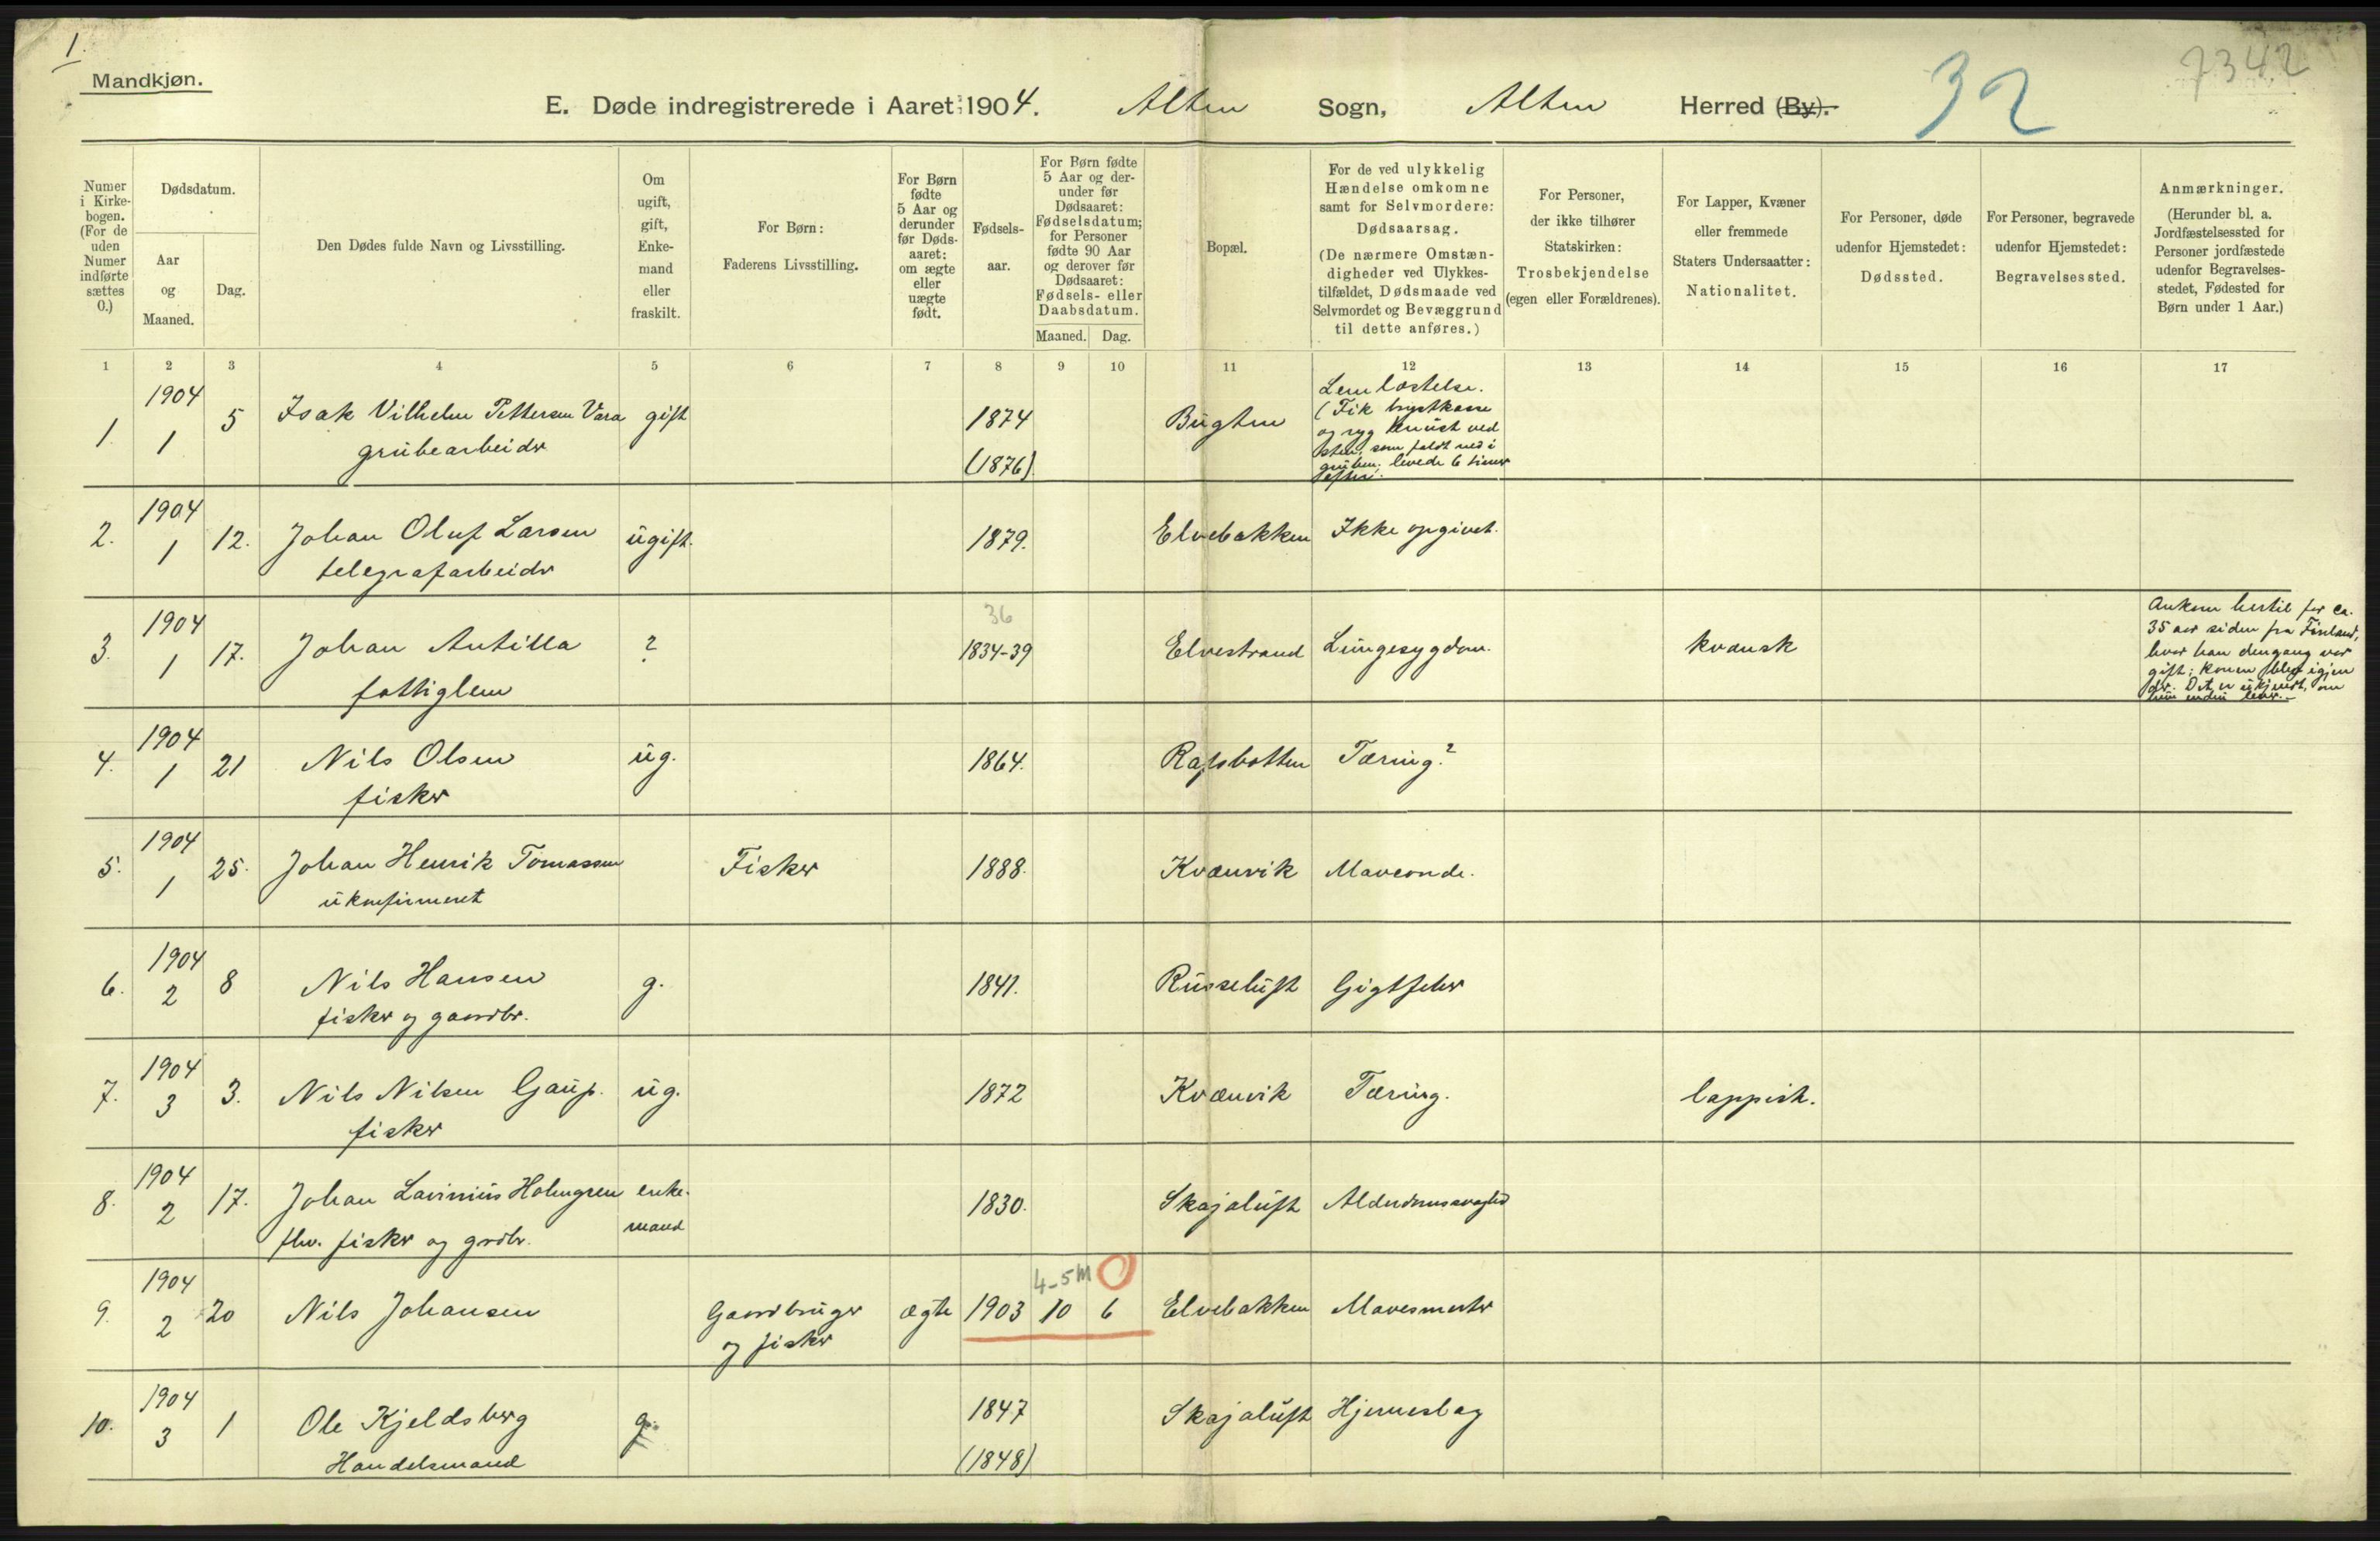 1.
Mandkjøn.
7342
32
E. Døde indregistrerede i Aaret 1904. Alten Sogn, Alten Herred (By).
Numer i Kirkebogen. (For de uden Numer indførte sættes 0.)
Dødsdatum.
Aar og Maaned.
Dag.
Den Dødes fulde Navn og Livsstilling.
Om ugift, gift, Enkemand eller fraskilt.
For Børn: Faderens Livsstilling.
For Børn fødte 5 Aar og derunder før Dødsaaret: om ægte eller uægte født.
Fødselsaar.
For Børn fødte 5 Aar og derunder før Dødsaaret: Fødselsdatum; for Personer fødte 90 Aar og derover før Dødsaaret: Fødsels- eller Daabsdatum.
Maaned. Dag.
Bopæl.
For de ved ulykkelig Hændelse omkomne samt for Selvmordere: Dødsaarsag. (De nærmere Omstændigheder ved Ulykkestilfældet, Dødsmaade ved Selvmordet og Bevæggrund til dette anføres.)
For Personer, der ikke tilhører Statskirken: Trosbekjendelse (egen eller Forældrenes).
For Lapper, Kvæner eller fremmede Staters Undersaatter: Nationalitet.
For Personer, døde udenfor Hjemstedet: Dødssted.
For Personer, begravede udenfor Hjemstedet: Begravelsessted.
Anmærkninger. (Herunder bl. a. Jordfæstelsessted for Personer jordfæstede udenfor Begravelsesstedet, Fødested for Børn under 1 Aar.)
1 2 3 4 5 6 7 8 9 10 11 12 13 14 15 16 17
1. 1904 1 5 Isak Vilhelm Pettersen Vara gift 1874 Bugten Lemlæstelse.
grubearbeider (1876) (Fik brystkasse
og ryg knust ved
sten, som faldt ned i
gruben; levede 6 timer
efter.
2. 1904 1 12. Johan Oluf Larsen ugift. 1879. Elvebakken Ikke opgivet.
telegrafarbeider
3. 1904 1 17. Johan Antilla ? 36 1834-39 Elvestrand Lungesygdom. kvænsk
fattiglem
Ankom hertil for ca.
35 aar siden fra Finland,
hvor han dengang var
gift; konen blev igjen
der. Det er ukjendt, om
hun endnu lever.
4. 1904 1 21 Nils Olsen ug. 1864. Rafsbotten Tæring?
fisker
5. 1904 1 25. Johan Henrik Tomassen Fisker 1888. Kvænvik Maveonde.
ukonfirmeret
6. 1904 2 8 Nils Hansen g. 1841. Russeluft Gigtfeber
fisker og gaardbr.
7. 1904 3 3. Nils Nilsen Gaup. ug. 1872 Kvænvik Tæring. lappisk.
fisker
8. 1904 2 17. Johan Lavinius Holmgren enke- 1830. Skajaluft Alderdomssvaghed
fhv. fisker og grdbr. mand
4-5 M 0
9. 1904 2 20 Nils Johansen Gaardbruger ægte 1903 10 6 Elvebakken Mavesmerter
og fisker
10. 1904 3 1 Ole Kjeldsberg g. 1847 Skajaluft Hjerneslag
Handelsmand (1848)